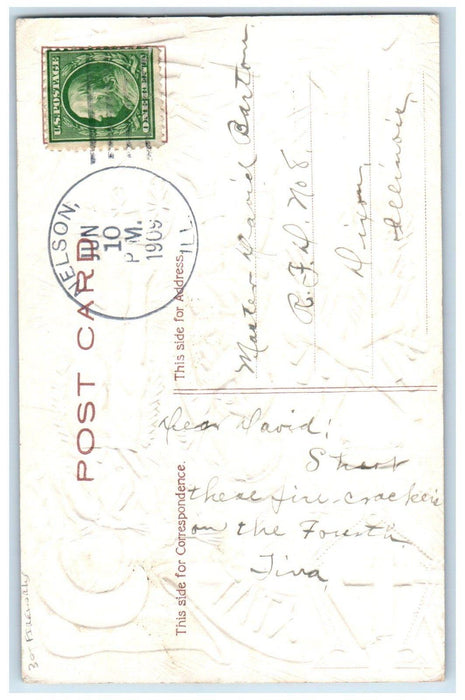 U.S. POSTAGE
ONE CENT
NELSON,
JUN
10
P.M.
1909
ILL.
POST CARD
This side for Correspondence.
This side for Address.
Dear David:
Shoot
these fire-crackers
on the Fourth.
Tina
Master David Barton
R.F.D. No 8.
Dixon,
Illinois,